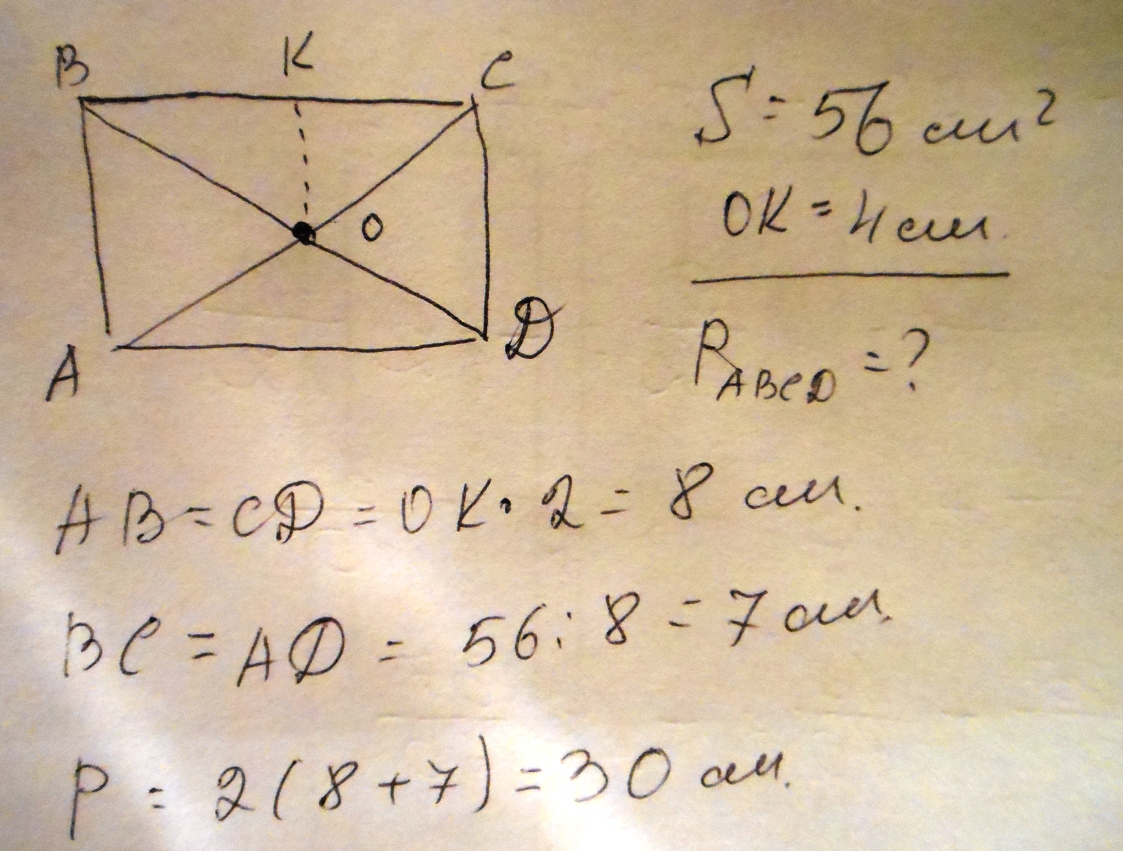 B K C
O
A D
S = 56 см²
OK = 4 см.
P ABCD = ?
AB = CD = OK · 2 = 8 см.
BC = AD = 56 : 8 = 7 см.
P = 2(8+7) = 30 см.